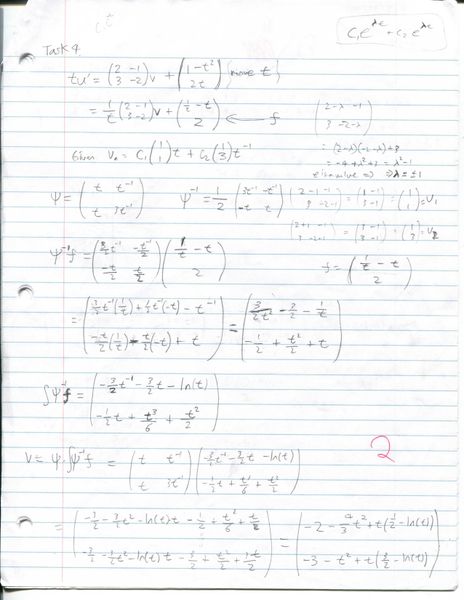 c₁e^λt + c₂e^λt
Task 4
tv' = (2 -1; 3 -2)v + (1-t²; 2t) (move t)
= 1/t (2 -1; 3 -2)v + (1/t - t; 2) ← f
(2-λ -1; 3 -2-λ)
Given V₀ = C₁(1; 1)t + C₂(1; 3)t⁻¹
= (2-λ)(-2-λ)+3
= -4+λ²+3 = λ²-1
⇒ λ = ±1
Ψ = (t t⁻¹; t 3t⁻¹) Ψ⁻¹ = 1/2 (3t⁻¹ -t⁻¹; -t t)
(2-1 -1; 3 -2-1) = (1 -1; 3 -3) = (1; 1) = V₁
(2+1 -1; 3 -2+1) = (3 -1; 3 -1) = (1; 3) = V₂
Ψ⁻¹f = (3/2 t⁻¹ -t⁻¹/2; -t/2 t/2)(1/t - t; 2)
f = (1/t - t; 2)
= (3/2 t⁻¹(1/t) + 3/2 t⁻¹(-t) - t⁻¹; -t/2(1/t) - t/2(-t) + t) = (3/2t² - 3/2 - 1/t; -1/2 + t²/2 + t)
∫Ψ⁻¹f = (-3/2 t⁻¹ - 3/2 t - ln(t); -1/2 t + t³/6 + t²/2)
2
V = Ψ∫Ψ⁻¹f = (t t⁻¹; t 3t⁻¹)(-3/2 t⁻¹ - 3/2 t - ln(t); -1/2 t + t³/6 + t²/2)
= (-3/2 - 3/2 t² - ln(t)t - 1/2 + t²/6 + t/2; -3/2 - 3/2 t² - ln(t)t - 3/2 + t²/2 + 3t/2) = (-2 - 4/3 t² + t(1/2 - ln(t)); -3 - t² + t(3/2 - ln(t)))